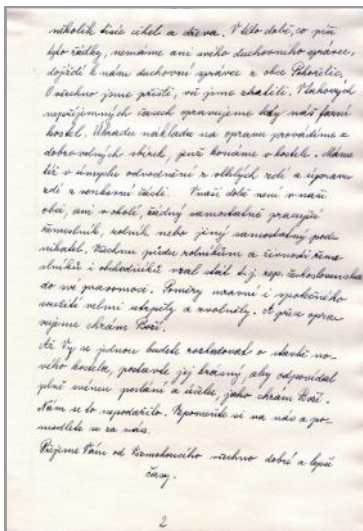 několik tisíc cihel a dřeva. V této době, co píši
tyto řádky, nemáme ani svého duchovního správce,
dojíždí k nám duchovní správce z obce Pohořelic.
O všechno jsme přišli, vše jsme ztratili. V takových
nepříjemných časech opravujeme tedy náš farní
kostel. Úhradu nákladu na opravu provádíme z
dobrovolných sbírek, jenž konáme v kostele. Máme
též v úmyslu odvodnění z vlhlých zdí a úpravu
zdí z venkovní části. V naší době není v naší
obci, ani v okolí, žádný samostatně pracující
řemeslník, rolník nebo jiný samostatný podnikatel.
Všechnu půdu rolníkům a živnosti řeme-
slníků i obchodníků vzal stát t. j. rep. československa
do své pravomoci. Poměry mravní i společného
soužití velmi utrpěly a zvolněly. A přece opra-
vujeme chrám Boží.
Až Vy se jednou budete rozhodovat o stavbě no-
vého kostela, postavte jej krásný, aby odpovídal
plně svému poslání a účelu, jako chrám Boží.
Nám se to nepodařilo. Vzpomeňte si na nás a po-
modlete se za nás.
Přejeme Vám od Všemohoucího všechno dobré a lepší
časy.
2